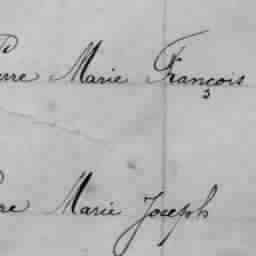 Pierre Marie François
re Marie Joseph